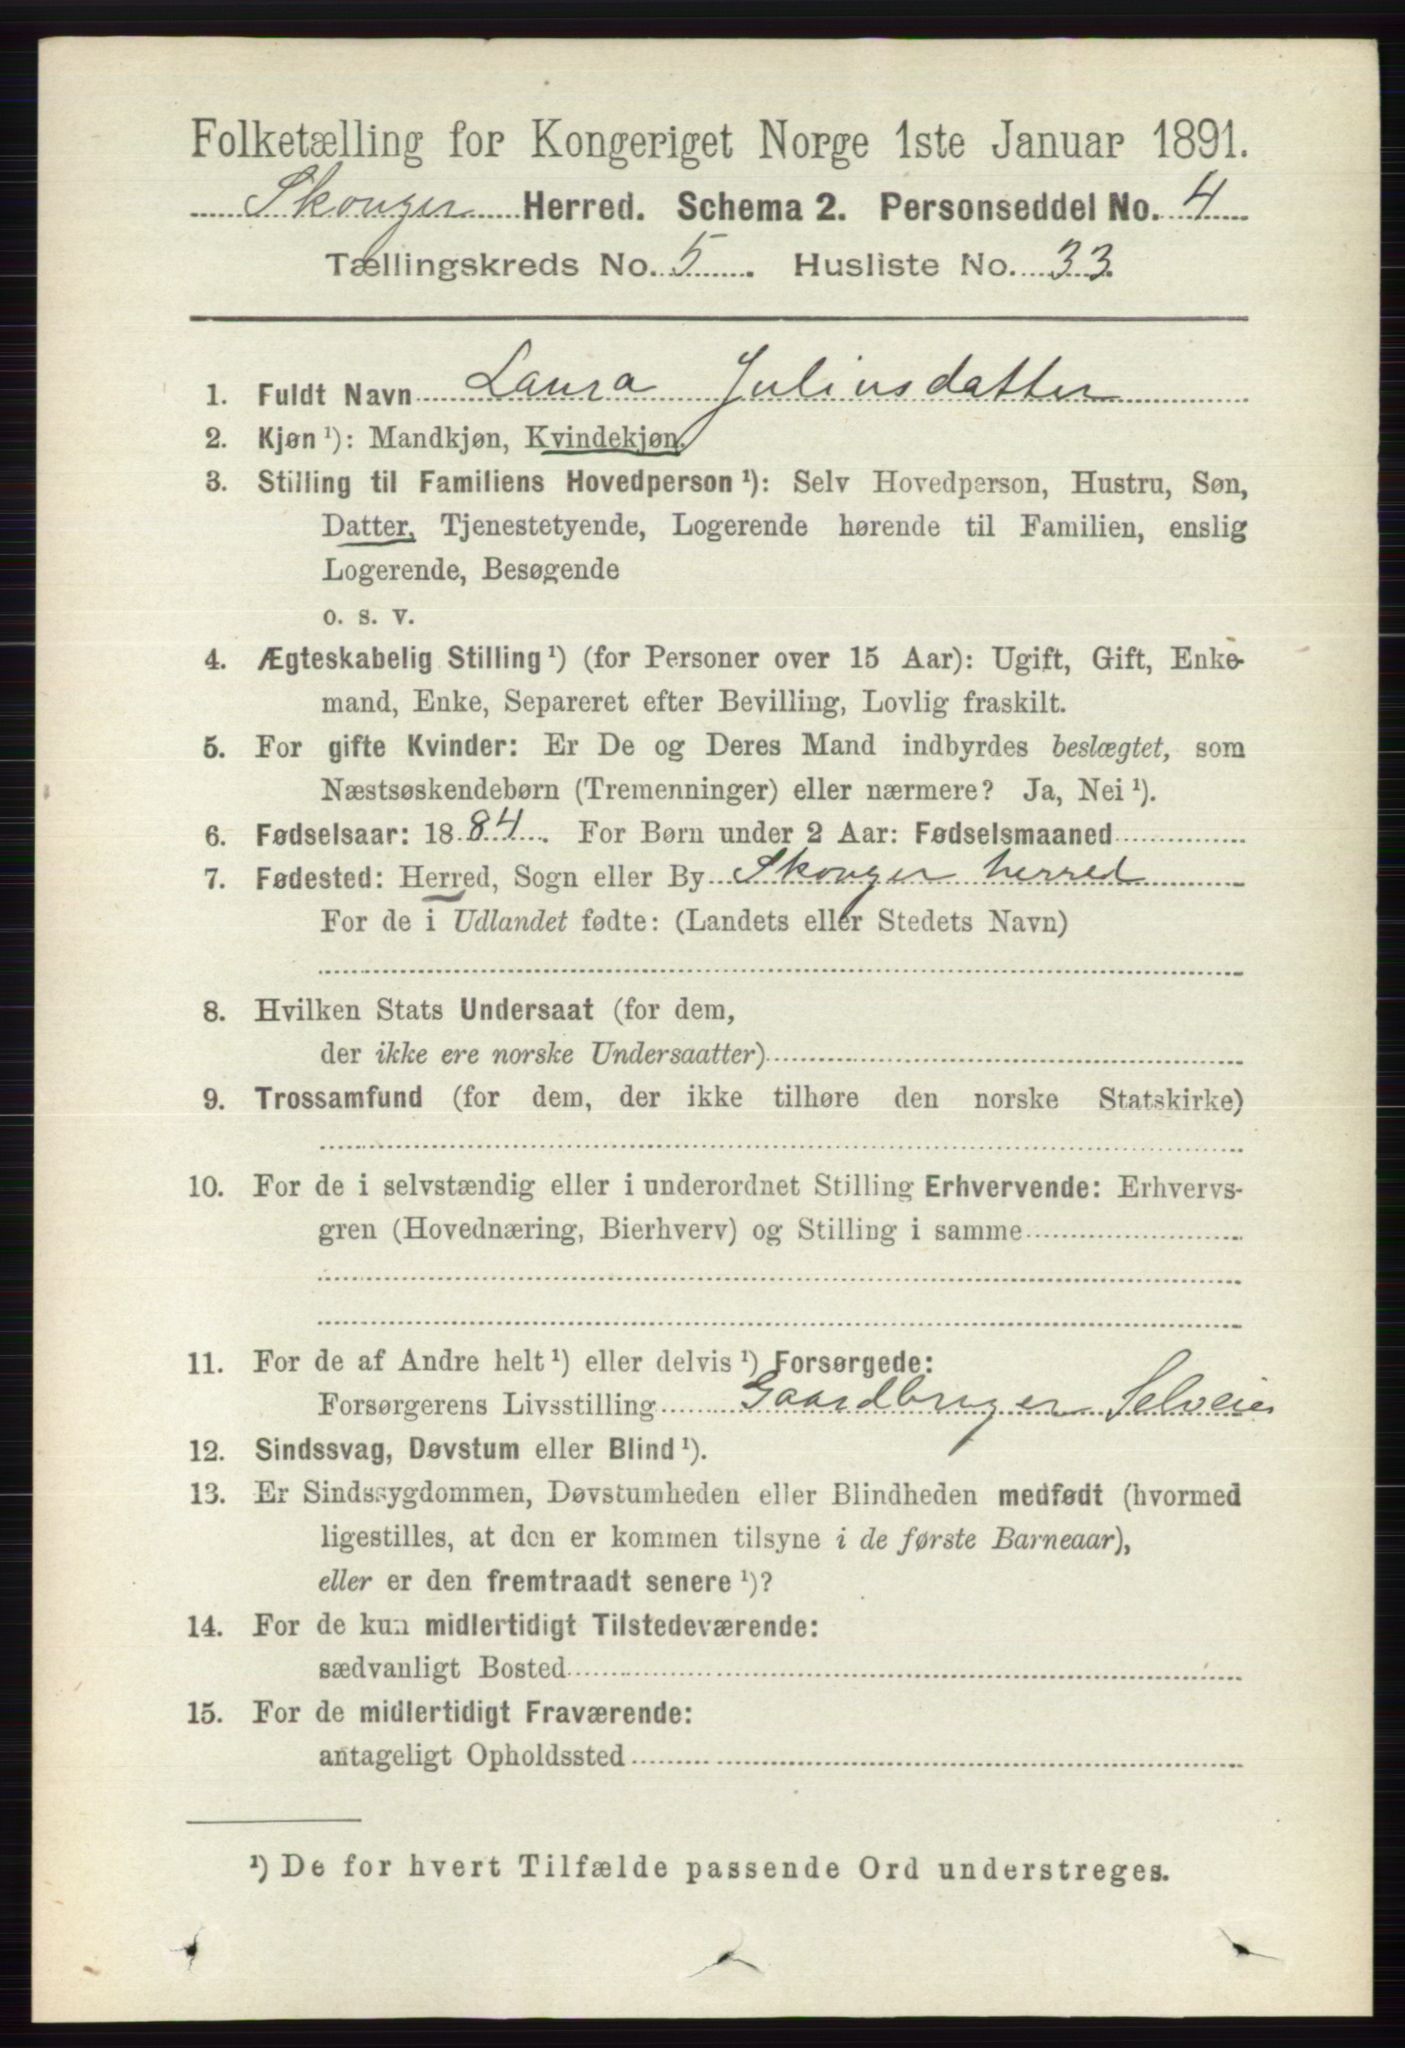 Folketælling for Kongeriget Norge 1ste Januar 1891.
Skouger Herred. Schema 2. Personseddel No. 4
Tællingskreds No. 5. Husliste No. 33.
1. Fuldt Navn Laura Juliusdatter
2. Kjøn ¹): Mandkjøn, Kvindekjøn.
3. Stilling til Familiens Hovedperson ¹): Selv Hovedperson, Hustru, Søn,
Datter, Tjenestetyende, Logerende hørende til Familien, enslig
Logerende, Besøgende
o. s. v.
4. Ægteskabelig Stilling ¹) (for Personer over 15 Aar): Ugift, Gift, Enke-
mand, Enke, Separeret efter Bevilling, Lovlig fraskilt.
5. For gifte Kvinder: Er De og Deres Mand indbyrdes beslægtet, som
Næstsøskendebørn (Tremenninger) eller nærmere? Ja, Nei ¹).
6. Fødselsaar: 1884. For Børn under 2 Aar: Fødselsmaaned
7. Fødested: Herred, Sogn eller By Skouger herred
For de i Udlandet fødte: (Landets eller Stedets Navn)
8. Hvilken Stats Undersaat (for dem,
der ikke ere norske Undersaatter)
9. Trossamfund (for dem, der ikke tilhøre den norske Statskirke)
10. For de i selvstændig eller i underordnet Stilling Erhvervende: Erhvervs-
gren (Hovednæring, Bierhverv) og Stilling i samme
11. For de af Andre helt ¹) eller delvis ¹) Forsørgede:
Forsørgerens Livsstilling Gaardbruger Selveier
12. Sindssvag, Døvstum eller Blind ¹).
13. Er Sindssygdommen, Døvstumheden eller Blindheden medfødt (hvormed
ligestilles, at den er kommen tilsyne i de første Barneaar),
eller er den fremtraadt senere ¹)?
14. For de kun midlertidigt Tilstedeværende:
sædvanligt Bosted
15. For de midlertidigt Fraværende:
antageligt Opholdssted
¹) De for hvert Tilfælde passende Ord understreges.